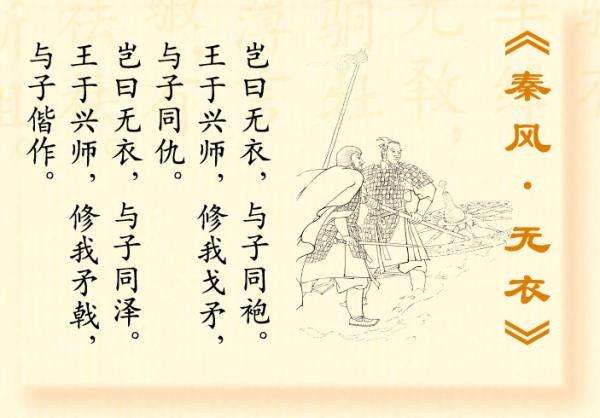 《秦风·无衣》
岂曰无衣，与子同袍。
王于兴师，修我戈矛，
与子同仇。
岂曰无衣，与子同泽。
王于兴师，修我矛戟，
与子偕作。